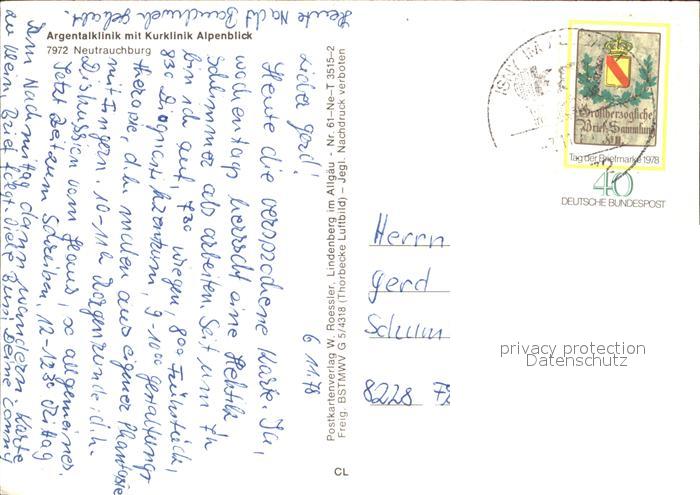 Heute Nacht Bauchweh gehabt.
Argentalklinik mit Kurklinik Alpenblick
7972 Neutrauchburg
6 11.78
Lieber Gerd!
Heute die versprochene Karte. Ja,
wochentags herrscht eine Hektik
schlimmer als arbeiten. Seit um 7h
bin ich auf, 7 30 wiegen, 8 00 Frühstück,
8 30 Diagnostikzentrum, 9 - 10 00 Gestaltungs
therapie, d.h. malen aus eigner Phantasie
mit Fingern. 10-11h Morgenrunde: d.h.
Diskussion vom Haus, so allgemeines.
Jetzt Zeit zum Schreiben. 12-12 30 Mittag
Am Nachmittag dann wandern. Karte
zu klein, Brief folgt. Viele Bussi Deine Conny
Postkartenverlag W. Roessler, Lindenberg im Allgäu - Nr. 61-Ne-T 3515-2
Freig. BSTMWV G 5/4318 (Thorbecke Luftbild) – Jegl. Nachdruck verboten
CL
ISNY IM ALLGÄU
Großherzogliche
Brief-Sammlung
Tag der Briefmarke 1978
40
DEUTSCHE BUNDESPOST
Herrn
Gerd
8228
privacy protection
Datenschutz